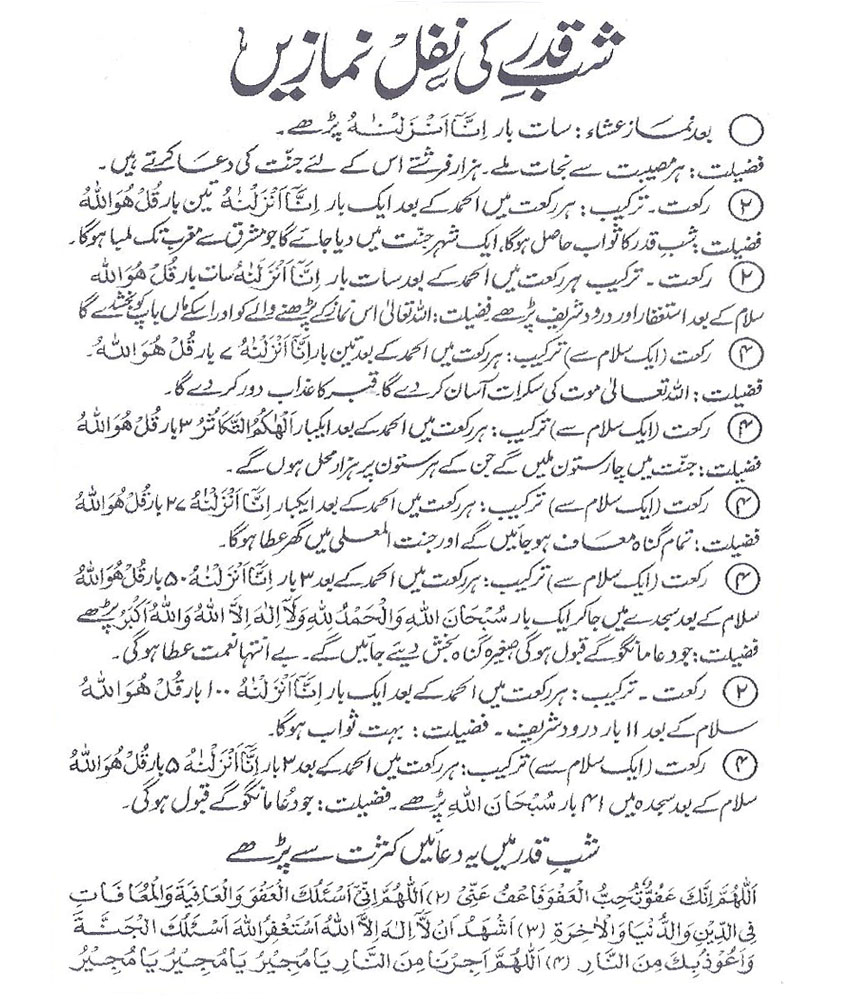 شبِ قدر کی نفل نمازیں
بعد نماز عشاء : سات بار اِنَّآ اَنْزَلْنٰہُ پڑھے۔
فضیلت : ہر مصیبت سے نجات ملے۔ ہزار فرشتے اس کے لئے جنّت کی دعا کرتے ہیں۔
۲ رکعت ۔ ترکیب : ہر رکعت میں الحمد کے بعد ایک بار اِنَّآ اَنْزَلْنٰہُ تین بار قُلْ ھُوَ اللّٰہُ
فضیلت : شبِ قدر کا ثواب حاصل ہوگا، ایک شہر جنّت میں دیا جائے گا جو مشرق سے مغرب تک لمبا ہوگا۔
۲ رکعت ۔ ترکیب ہر رکعت میں الحمد کے بعد سات بار اِنَّآ اَنْزَلْنٰہُ سات بار قُلْ ھُوَ اللّٰہُ
سلام کے بعد استغفار اور درود شریف پڑھے فضیلت : اللہ تعالیٰ اس نماز کے پڑھنے والے کو اور اسکے ماں باپ کو بخشدے گا
۴ رکعت (ایک سلام سے) ترکیب : ہر رکعت میں الحمد کے بعد تین بار اِنَّآ اَنْزَلْنٰہُ ۷ بار قُلْ ھُوَ اللّٰہُ۔
فضیلت : اللہ تعالیٰ موت کی سکرات آسان کر دے گا، قبر کا عذاب دور کر دے گا۔
۴ رکعت (ایک سلام سے) ترکیب : ہر رکعت میں الحمد کے بعد ایکبار اَلْھٰکُمُ التَّکَاثُرُ ۳ بار قُلْ ھُوَ اللّٰہُ
فضیلت : جنّت میں چار ستون ملیں گے جن کے ہر ستون پر ہزار محل ہوں گے۔
۴ رکعت (ایک سلام سے) ترکیب : ہر رکعت میں الحمد کے بعد ایکبار اِنَّآ اَنْزَلْنٰہُ ۲۷ بار قُلْ ھُوَ اللّٰہُ
فضیلت : تمام گناہ معاف ہو جائیں گے اور جنت المعلی میں گھر عطا ہوگا۔
۴ رکعت (ایک سلام سے) ترکیب : ہر رکعت میں الحمد کے بعد ۳ بار اِنَّآ اَنْزَلْنٰہُ ۵۰ بار قُلْ ھُوَ اللّٰہُ
سلام کے بعد سجدے میں جاکر ایک بار سُبْحَانَ اللّٰہِ وَالْحَمْدُ لِلّٰہِ وَلَآ اِلٰہَ اِلَّا اللّٰہُ وَاللّٰہُ اَکْبَرُ پڑھے
فضیلت : جو دعا مانگو گے قبول ہوگی صغیرہ گناہ بخش دیئے جائیں گے۔ بے انتہا نعمت عطا ہوگی۔
۲ رکعت ۔ ترکیب : ہر رکعت میں الحمد کے بعد ایک بار اِنَّآ اَنْزَلْنٰہُ ۱۰۰ بار قُلْ ھُوَ اللّٰہُ
سلام کے بعد ۱۱ بار درود شریف ۔ فضیلت : بہت ثواب ہوگا۔
۴ رکعت (ایک سلام سے) ترکیب : ہر رکعت میں الحمد کے بعد ۳ بار اِنَّآ اَنْزَلْنٰہُ ۵ بار قُلْ ھُوَ اللّٰہُ
سلام کے بعد سجدہ میں ۴۱ بار سُبْحَانَ اللّٰہِ پڑھے۔ فضیلت : جو دُعا مانگو گے قبول ہوگی۔
شبِ قدر میں یہ دعائیں کثرت سے پڑھے
اَللّٰھُمَّ اِنَّکَ عَفُوٌّ تُحِبُّ الْعَفْوَ فَاعْفُ عَنِّیْ (۲) اَللّٰھُمَّ اِنِّیْ اَسْئَلُکَ الْعَفْوَ وَالْعَافِیَۃَ وَالْمُعَافَاتَ
فِی الدِّیْنِ وَالدُّنْیَا وَالْاٰخِرَۃِ (۳) اَشْھَدُ اَنْ لَّآ اِلٰہَ اِلَّا اللّٰہُ اَسْتَغْفِرُ اللّٰہَ اَسْئَلُکَ الْجَنَّۃَ
وَاَعُوْذُ بِکَ مِنَ النَّارِ (۴) اَللّٰھُمَّ اَجِرْنَا مِنَ النَّارِ یَا مُجِیْرُ یَا مُجِیْرُ یَا مُجِیْرُ یَا مُجِیْرُ